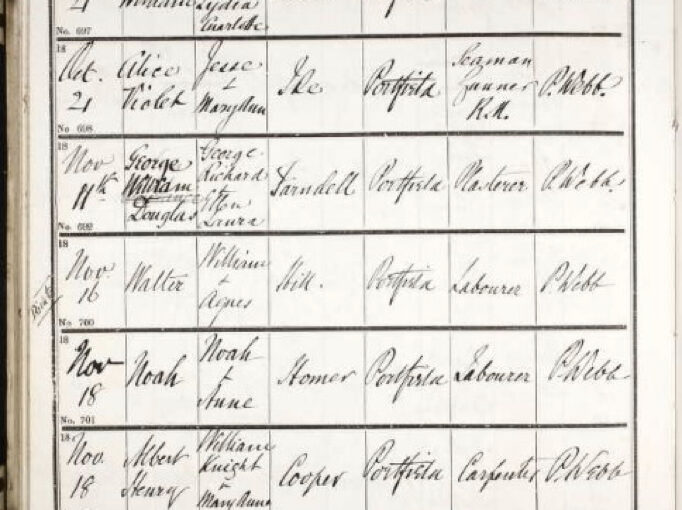 21
Lydia
Charlotte
No. 697
18
Oct. 21 Alice Violet Jesse & Mary Ann Ide Portfield Seaman Gunner R.N. P. Webb.
No. 698
18
Nov 11th George William Douglas George Richard & Ellen Laura Farndell Portfield Plasterer P. Webb.
No. 699
18
Nov. 16 Walter William & Agnes Hill. Portfield Labourer P. Webb
No. 700
18
Nov 18 Noah Noah & Anne Homer Portfield Labourer P. Webb
No. 701
18
Nov. 18 Albert Henry William Knight & Mary Anne Cooper Portfield Carpenter P. Webb